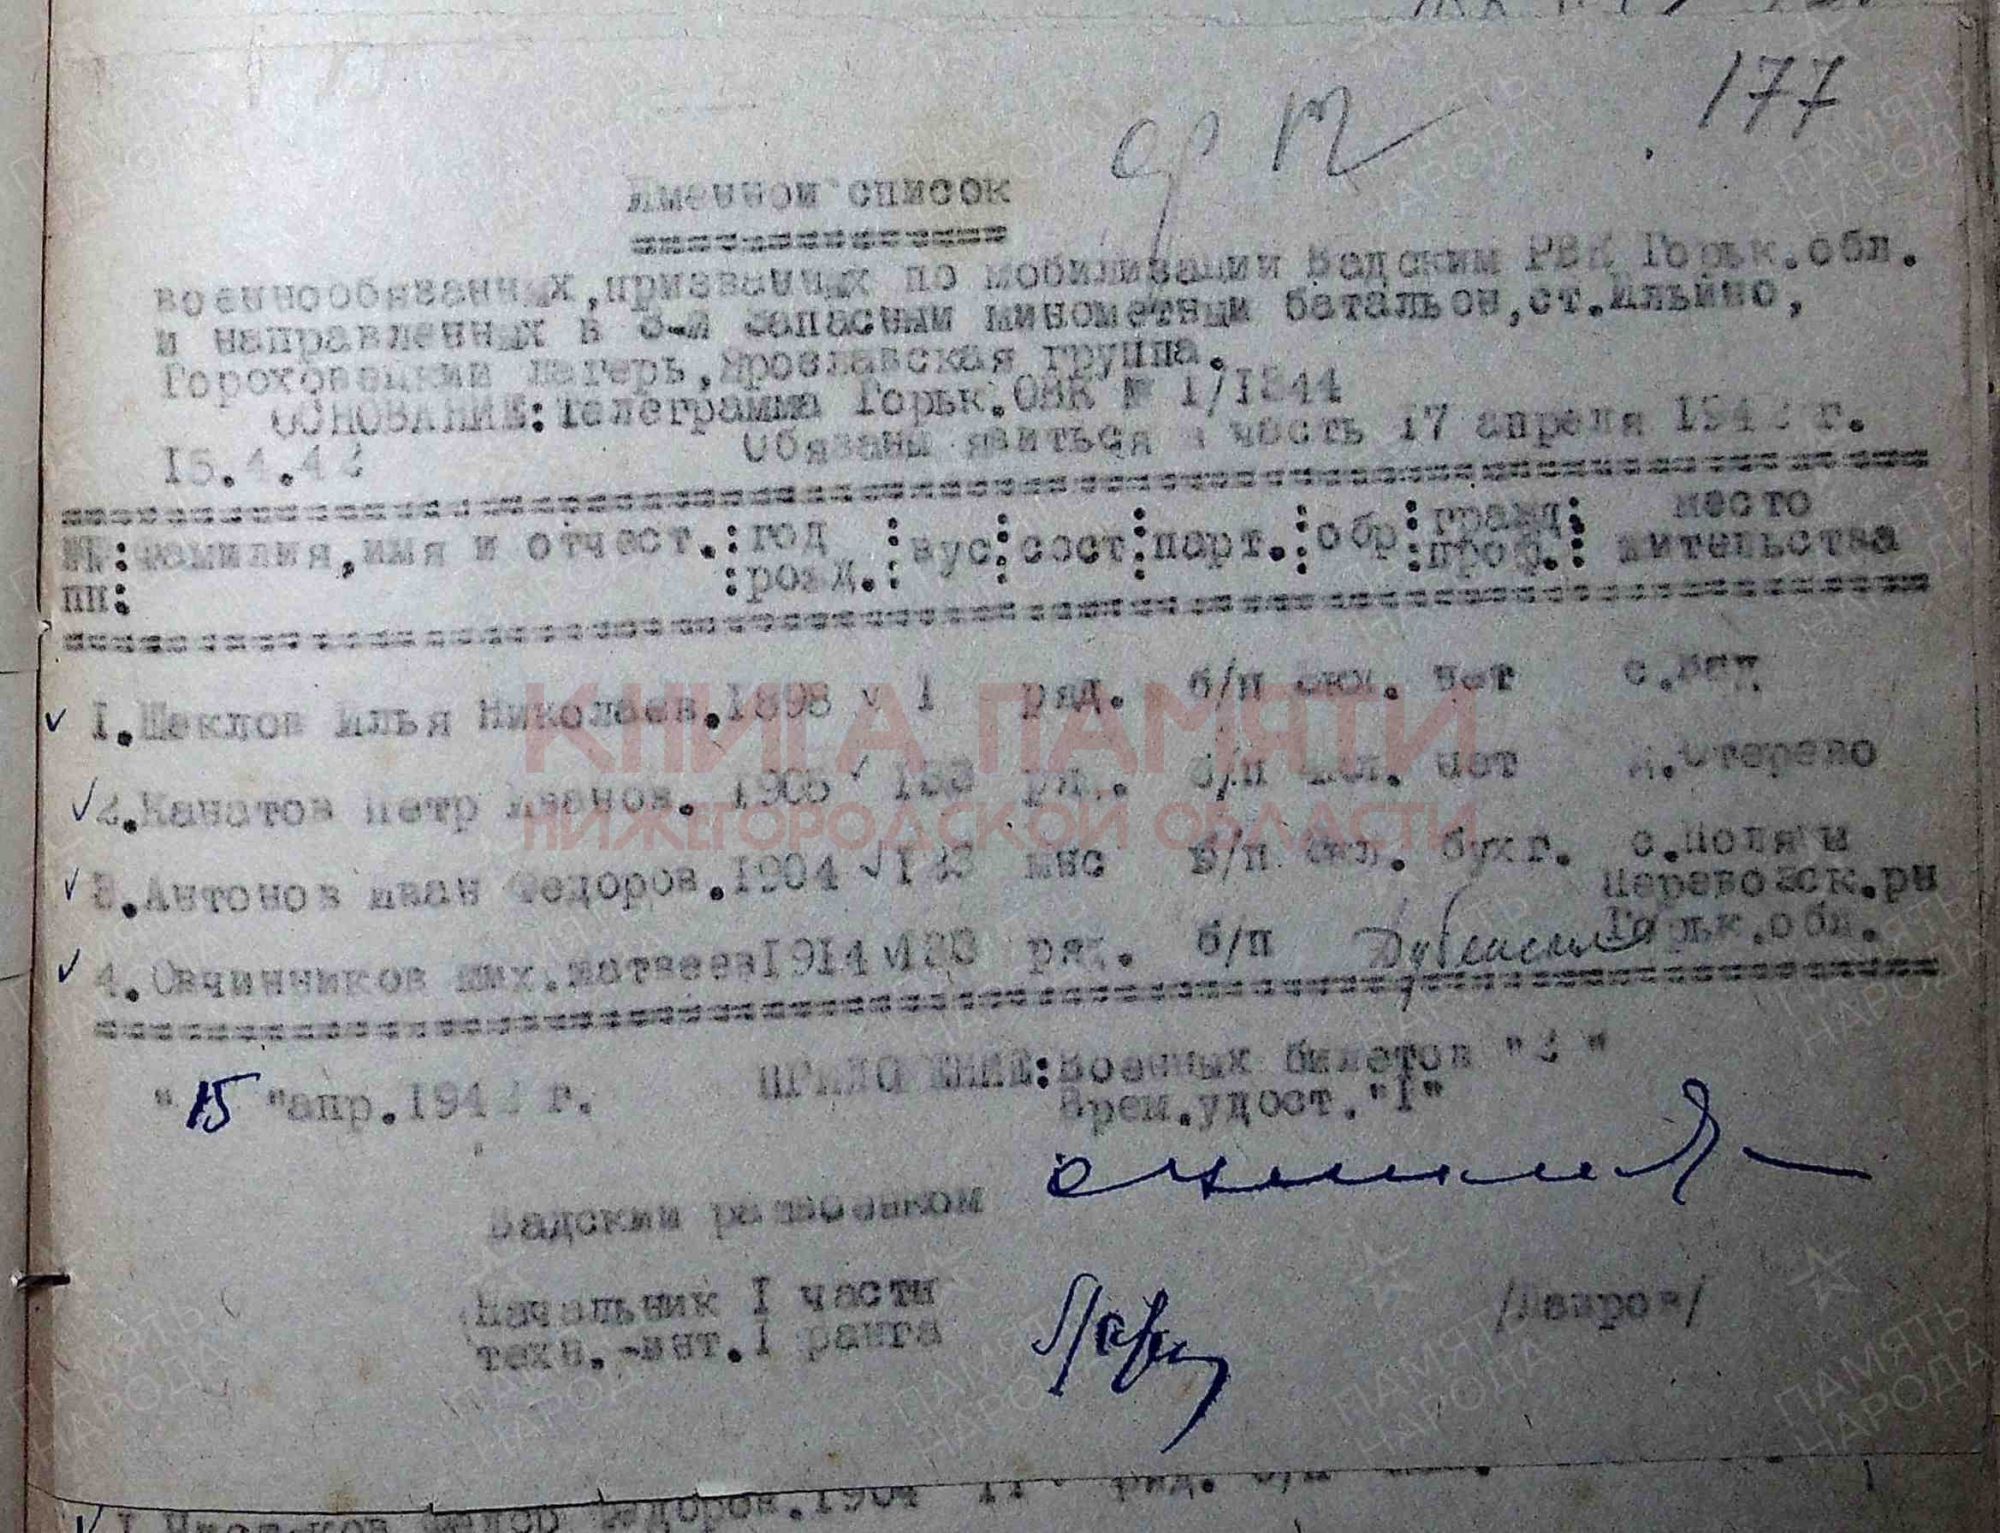 177
Именной список
военнообязанных,призванных по мобилизации Вадским РВК Горьк.обл.
и направленных в 3-й запасный минометный батальон,ст.Ильино,
Гороховецкий лагерь,Ярославская группа.
ОСНОВАНИЕ:Телеграмма Горьк.ОВК № 1/1344
15.4.42 Обязаны явиться в часть 17 апреля 1942 г.
№№:фамилия,имя и отчест.:год :вус:сост:парт.:обр:гражд: место
пп: :рожд.: :проф.: жительства
1.Шеклов Илья Николаев.1898 v 1 ряд. б/п нет с.Вад
2.Канатов Петр Иванов. 1905 ряд. б/п нет
3.Антонов Иван Федоров.1904 мнс б/п бухг. с.Поляны
Перевозск.рн
4.Овчинников Мих.Матвеев1914 ряд. б/п Горьк.обл.
"15 "апр.1942 г. ПРИЛОЖЕНИЕ:Военных билетов "3 "
Врем.удост."1"
Вадский райвоенком
Начальник I части
техн.-инт.I ранга /Лавров/
КНИГА ПАМЯТИ
НИЖЕГОРОДСКОЙ ОБЛАСТИ
ПАМЯТЬ
НАРОДА